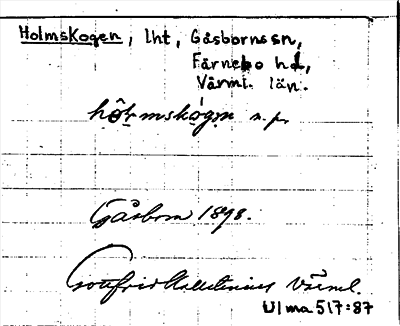 Holmskogen, lht, Gåsbornssn,
Färnebo hd,
Värml. län.
n. pr.
Gåsborn 1898.
Gottfrid Kallstenius Värml.
Ulma 517:87